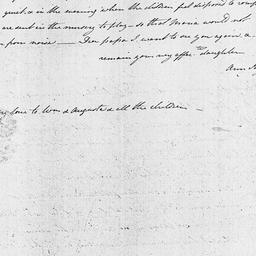 quiet & in the morning when the children feel disposed to romp
are sent in the nursery to play – so that Mama would not
from noise — Dear papa I want to see you again, &
remain your affec daughter
Ann
love to & Augusta & all the children –